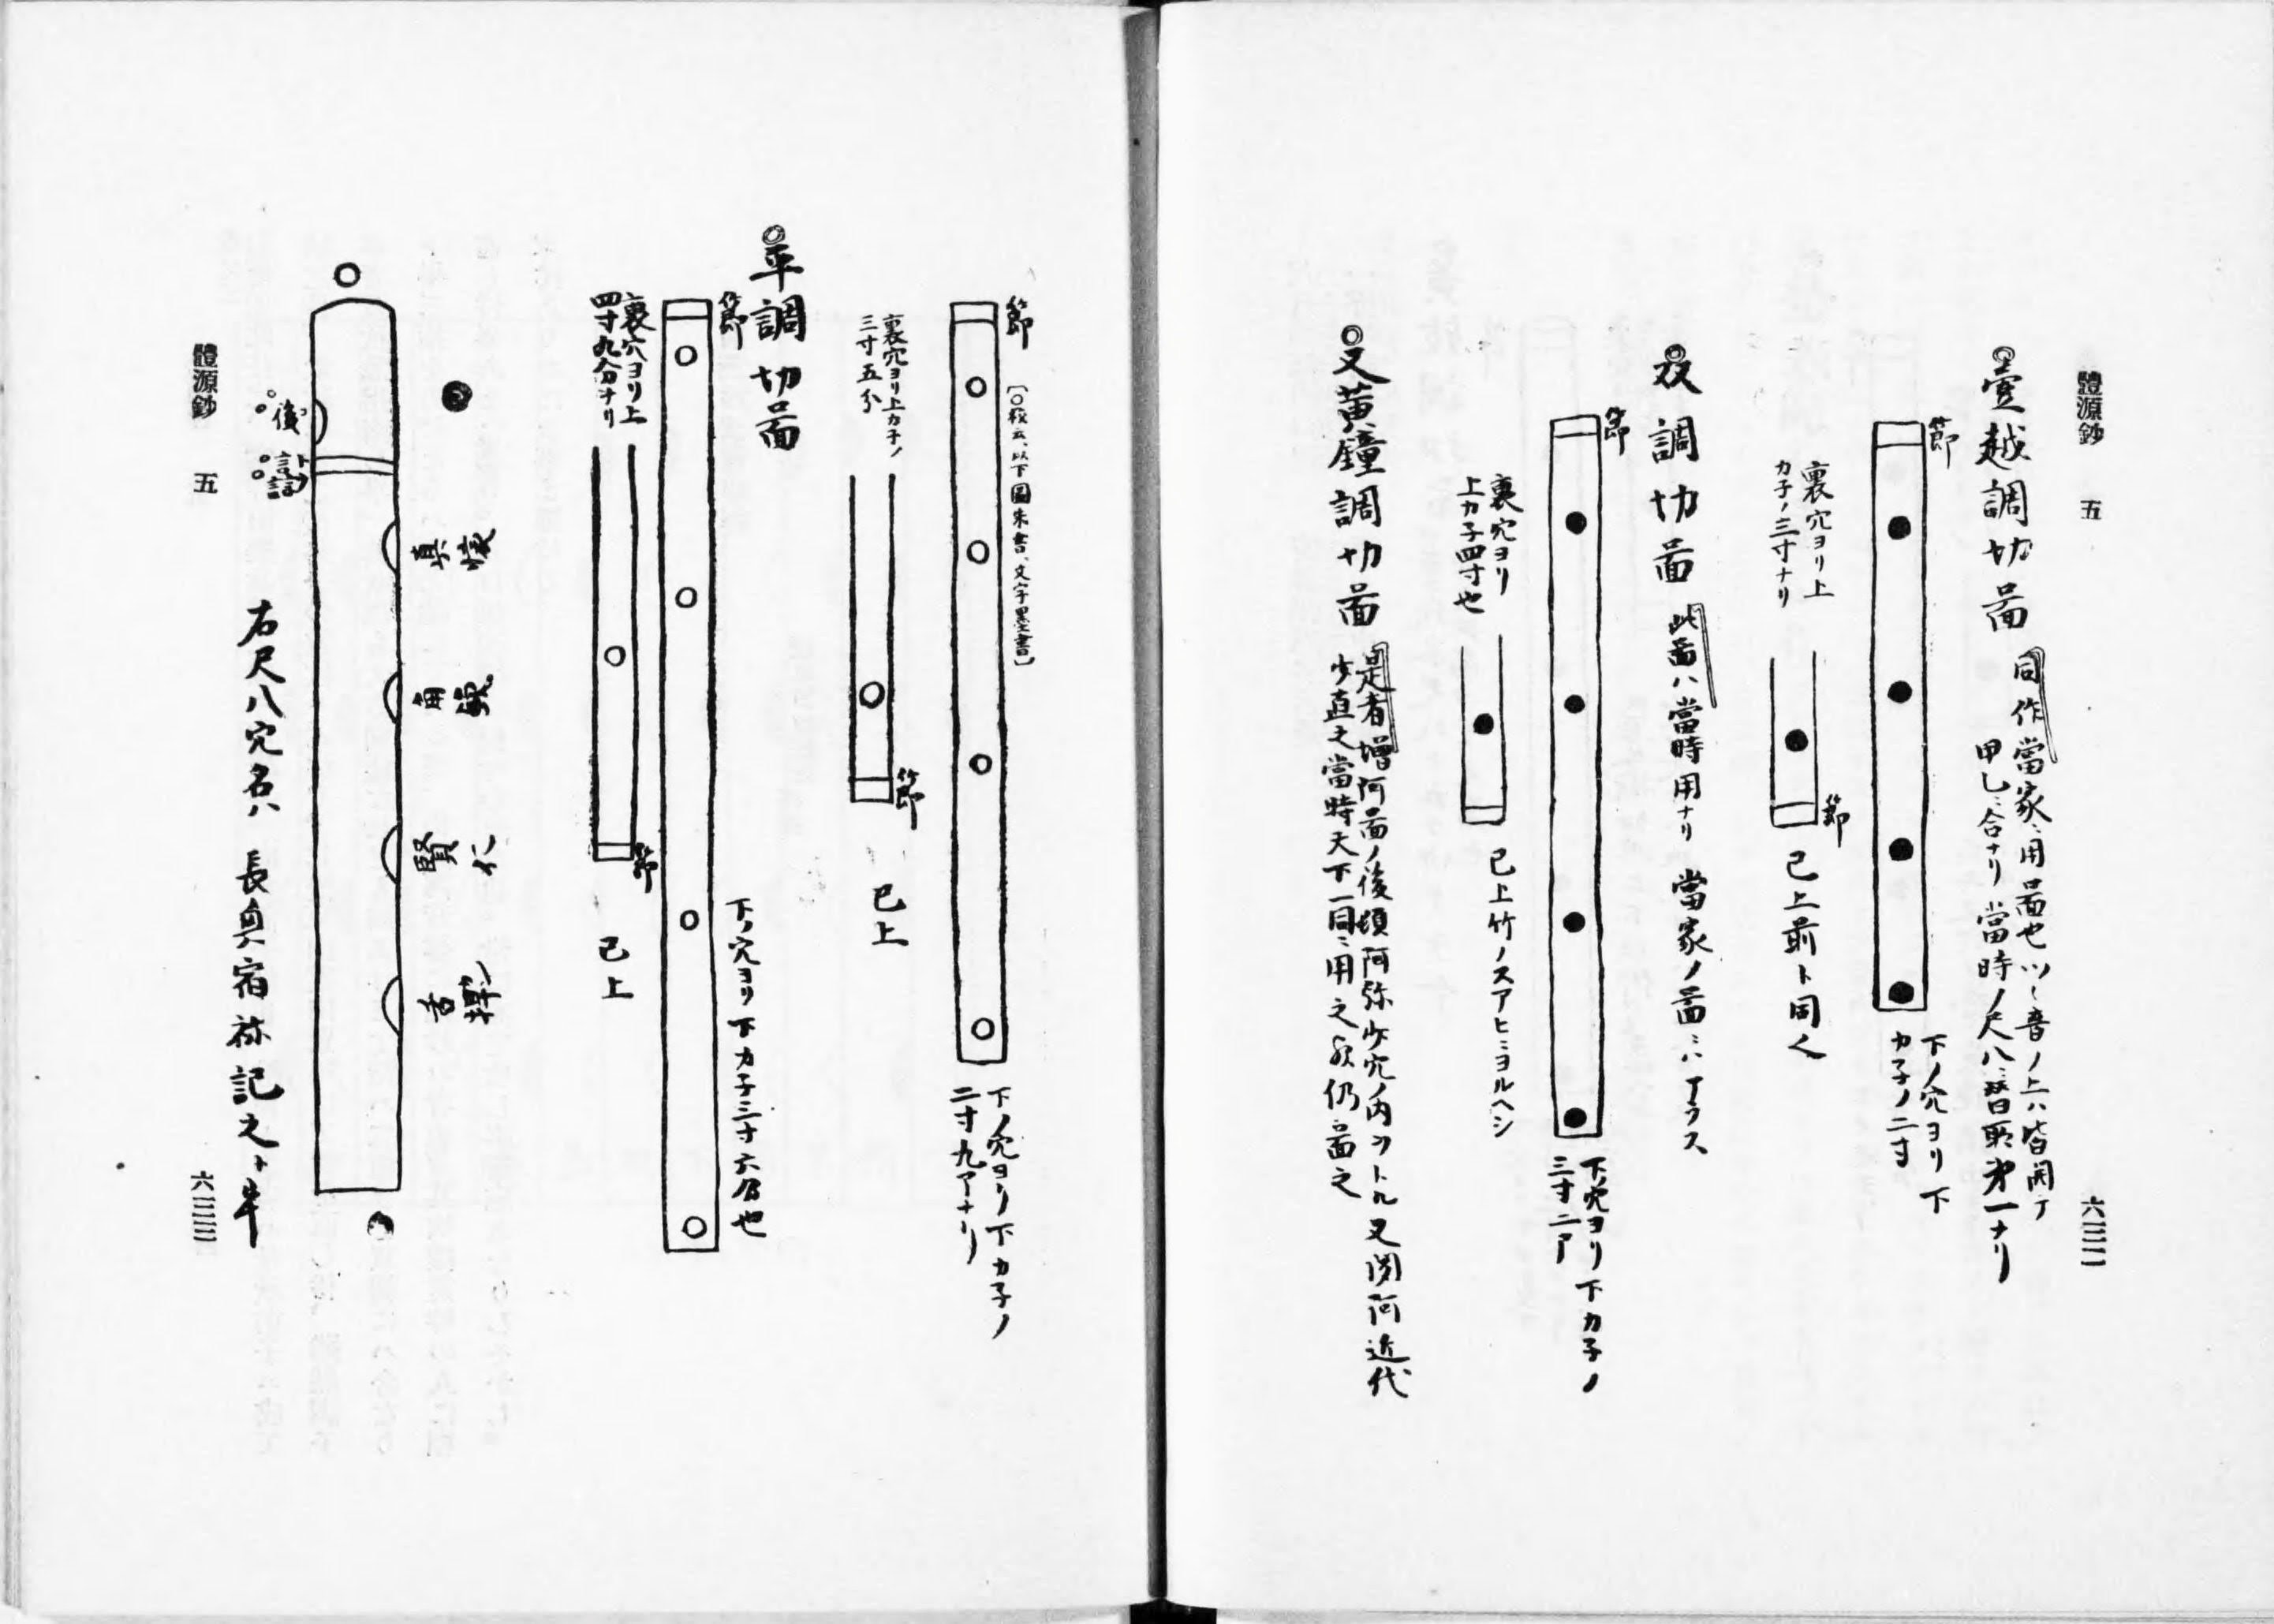 體源鈔 五
六二二
壹越調切啚
同作當家ニ用啚也ツヽ音ノ上ハ皆開テ
甲乙ニ合ナリ 當時ノ尺八ニ
第一ナリ
節
下ノ穴ヨリ下
カ子ノ二寸
裏穴ヨリ上
カ子ノ三寸ナリ
節
已上前ト同
双調切啚
此啚ハ當時用ナリ 當家ノ啚ニハアラス
節
下穴ヨリ下カ子ノ
三寸二ア
裏穴ヨリ
上カ子四寸也
已上竹ノスアヒニヨルヘシ
又黄鐘調切啚
是者増阿啚ノ後頓阿弥少穴ノ内ヲトル又閑阿近代
少直之當時天下一同ニ用之 仍啚之
節
〔〇校云、以下圖朱書、文字墨書〕
下ノ穴ヨリ下カ子ノ
二寸九アナリ
裏穴ヨリ上カ子ノ
三寸五分
節
已上
平調切啚
節
下ノ穴ヨリ下カ子三寸六分也
裏穴ヨリ上
四寸九分ナリ
節
已上
真
角
賢仁
舌
後
右尺八穴名ハ 長奥宿祢記之
體源鈔 五
六二三